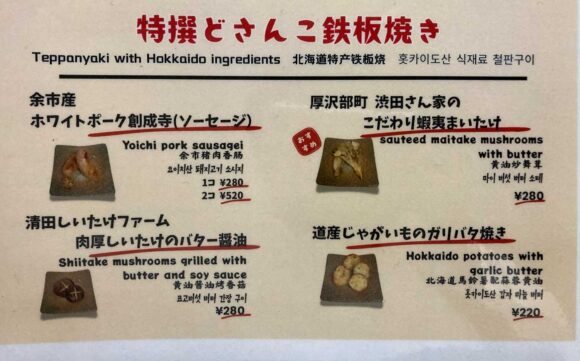 特撰どさんこ鉄板焼き
Teppanyaki with Hokkaido ingredients 北海道特产铁板烧 홋카이도산 식재료 철판구이
余市産
ホワイトポーク創成寺(ソーセージ)
Yoichi pork sausagei
余市猪肉香肠
요이치산 돼지고기 소시지
1コ ¥280
2コ ¥520
厚沢部町 渋田さん家の
こだわり蝦夷まいたけ
おすすめ
sauteed maitake mushrooms
with butter
黄油炒舞茸
마이 버섯 버터 소테
¥280
清田しいたけファーム
肉厚しいたけのバター醤油
Shiitake mushrooms grilled with
butter and soy sauce
黄油酱油烤香菇
표고버섯 버터 간장 구이
¥280
道産じゃがいものガリバタ焼き
Hokkaido potatoes with
garlic butter
北海道馬鈴薯配蒜蓉黄油
홋카이도산 감자 마늘 버터
¥220